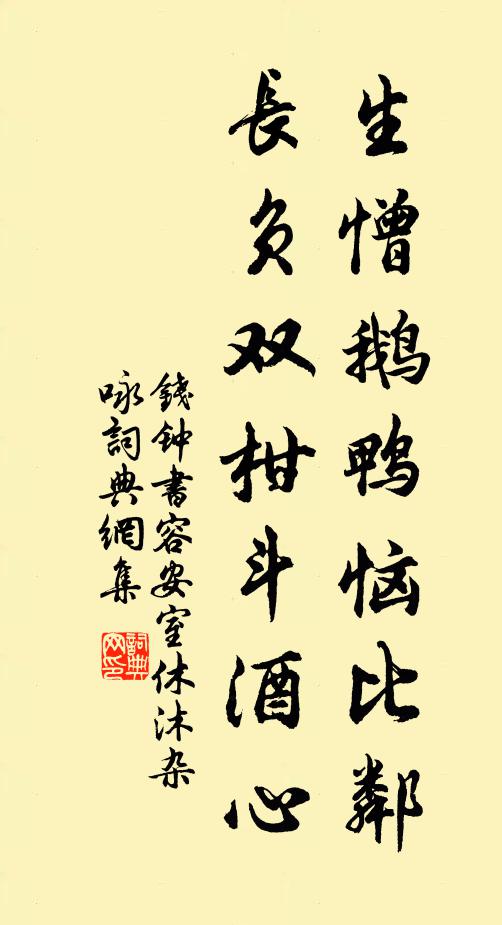 生憎鹅鸭恼比鄰
長负双柑斗酒心
錢钟書容安室休沐杂
咏詞典網集
詞典网印